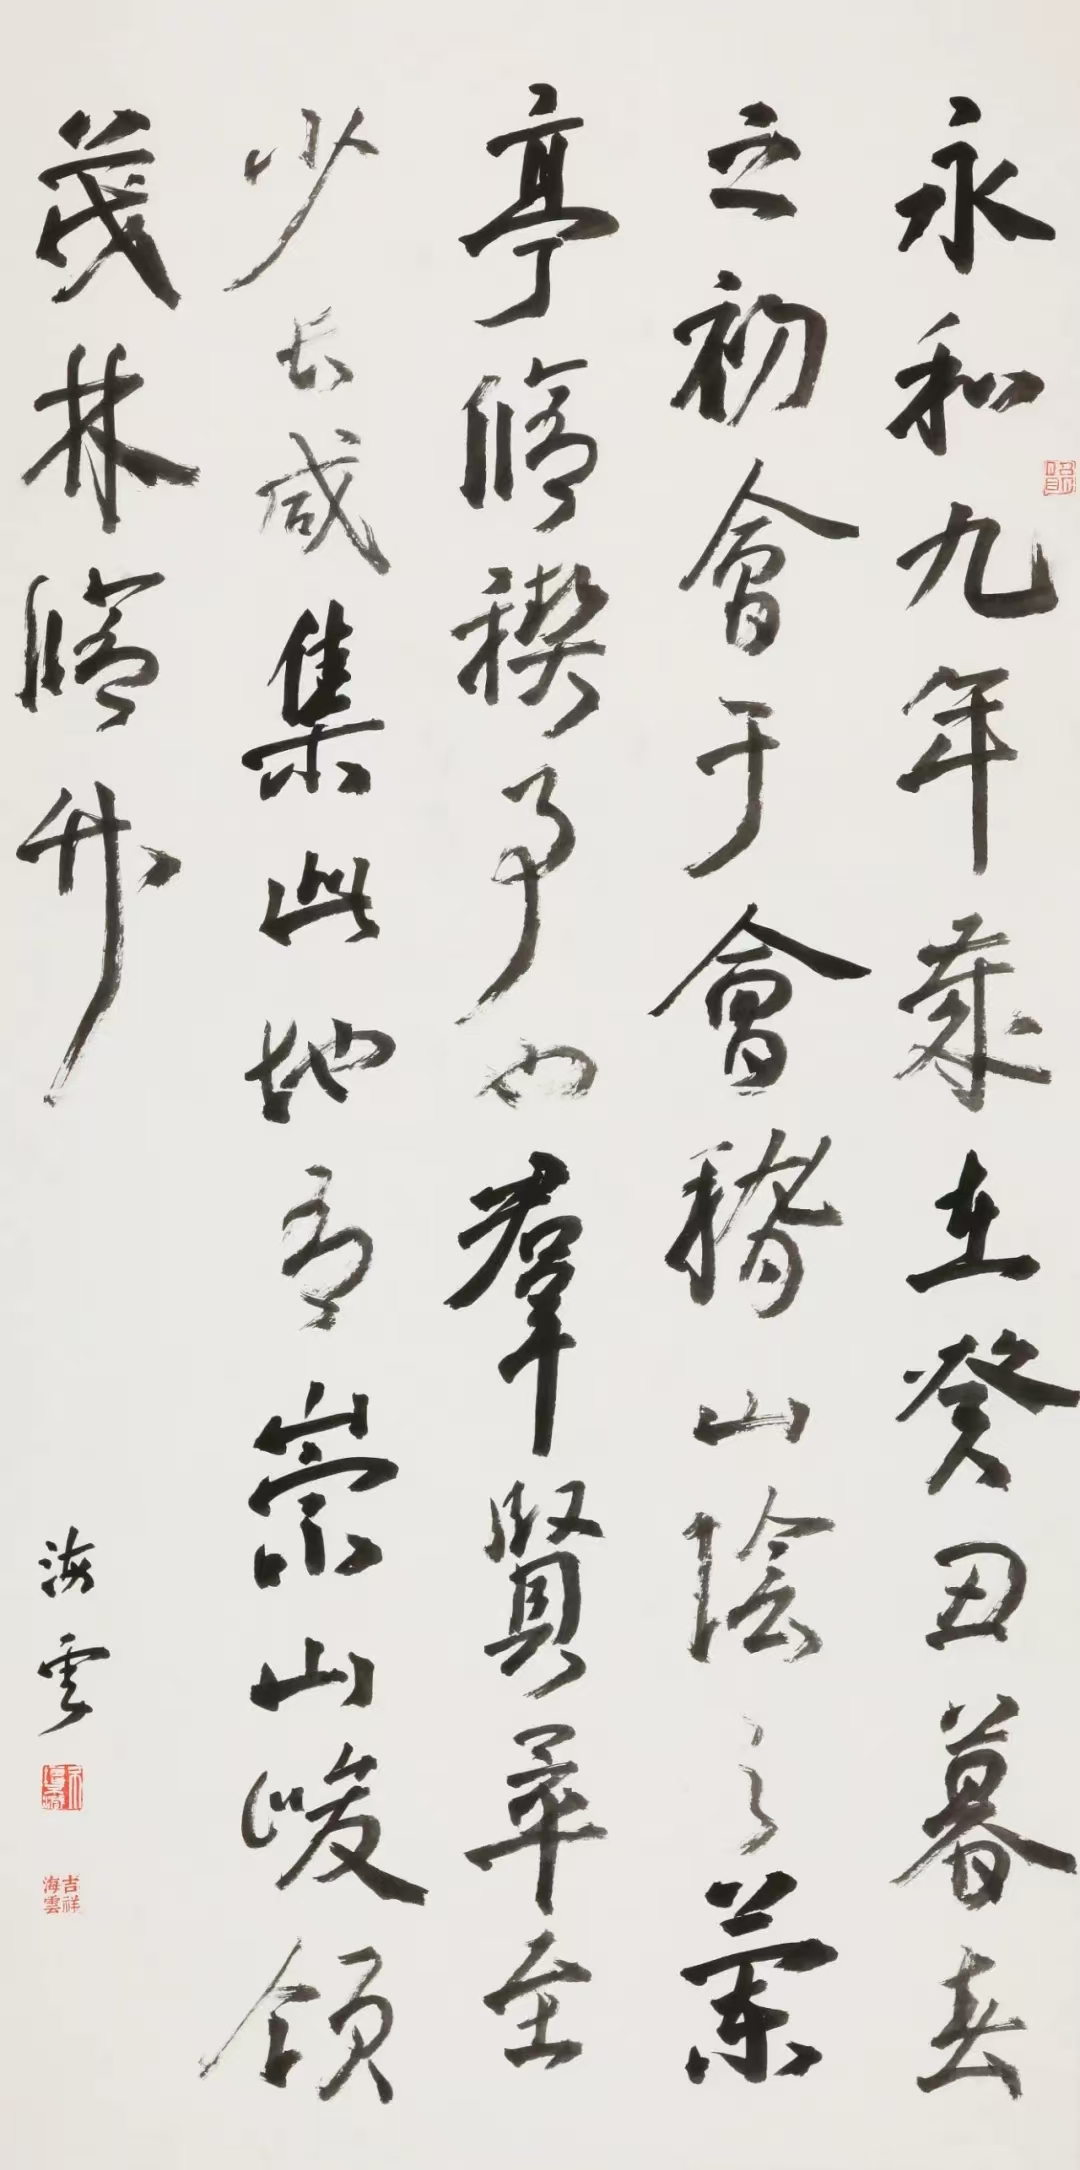 永和九年歲在癸丑暮春
之初會于會稽山陰之蘭
亭脩稧事也羣賢畢至
少長咸集此地有崇山峻領
茂林脩竹
海雲
吉祥
海雲